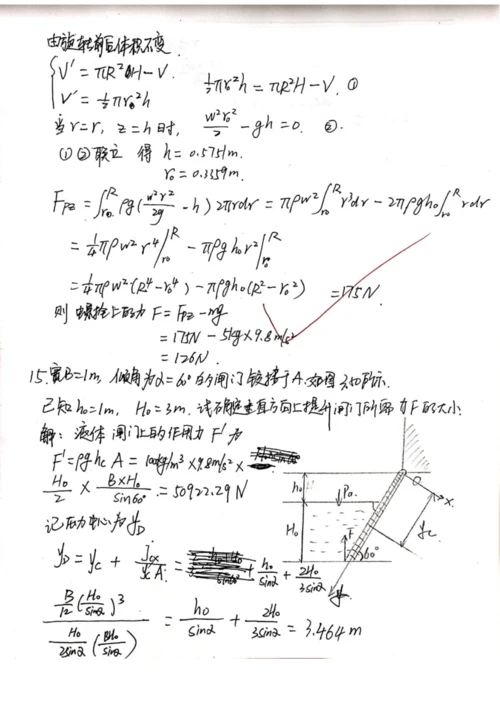 由旋转前后体积不变.
{V' = πR²H - V
V' = ½πr₀²h
½πr₀²h = πR²H - V. ①
当 r = r, z = h 时, w²r₀²/2 - gh = 0. ②.
①②联立 得 h = 0.5751m.
r₀ = 0.3359m.
Fpz = ∫r₀^R ρg(w²r²/2g - h) 2πrdr = πρw²∫r₀^R r³dr - 2πρgh₀∫r₀^R rdr
= ¼πρw²r⁴|r₀^R - πρgh₀r²|r₀^R
= ¼πρw²(R⁴-r₀⁴) - πρgh₀(R²-r₀²) = 175N.
则 螺栓上的力 F = Fpz - mg
= 175N - 5kg×9.8m/s²
= 126N.
15. 宽B=1m, 倾角为α=60°的闸门铰接于A. 如图3.50所示.
已知h₀=1m, H₀=3m. 试求 垂直方向上提升闸门所需力F的大小.
解: 液体闸门上的作用力F'为
F' = ρghc A = 1000kg/m³ × 9.8m/s² ×
H₀/2 × B×H₀/sin60° = 50922.29N
记压力中心为yD
yD = yc + Jcx/ycA = h₀/sinα + 2H₀/3sinα
B/12 (H₀/sinα)³ / H₀/2sinα (BH₀/sinα) = h₀/sinα + 2H₀/3sinα = 3.464m
h₀
Pa
H₀
F
60°
x
yc
y